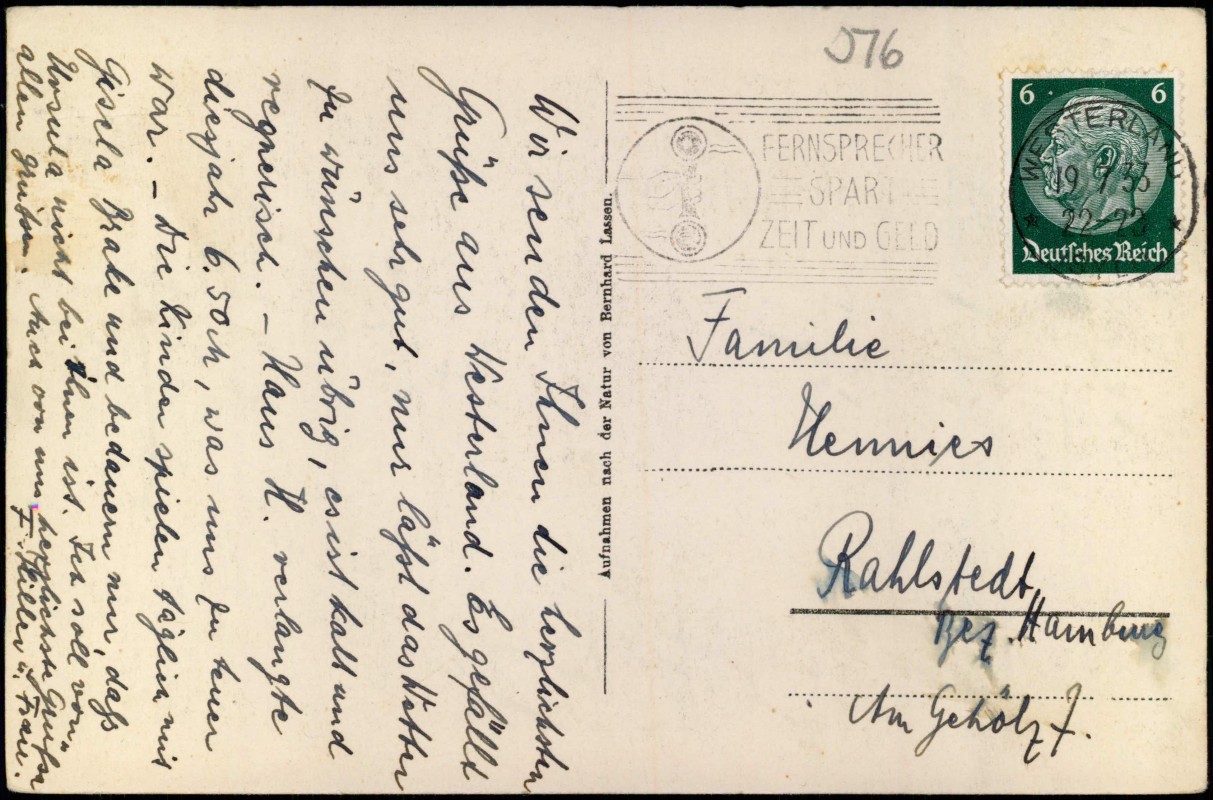 Wir senden Ihnen die herzlichsten
Grüße aus Westerland. Es gefällt
uns sehr gut, nur läßt das Wetter
zu wünschen übrig, es ist kalt und
regnerisch. – Haus H. verlangte
dies Jahr 6.50 M, was uns zu teuer
war. – Die Kinder spielen täglich mit
Gisela und bedauern nur, daß
Ursula nicht bei Ihnen ist. Ich soll von
allen grüßen. Auch von uns herzlichste Grüße
F. Hiller u. Frau.
Aufnahmen nach der Natur von Bernhard Lassen.
576
FERNSPRECHER
SPART
ZEIT UND GELD
6 6
WESTERLAND
19 7 33
22-23
SYLT
Deutsches Reich
Familie
Hennies
Rahlstedt
Bez. Hamburg
Am Gehölz 7.